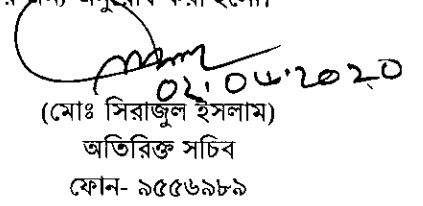 অনুরোধ করা হলো।
02.04.2020
(মোঃ সিরাজুল ইসলাম)
অতিরিক্ত সচিব
ফোন- ৯৫৫৬৯৮৯